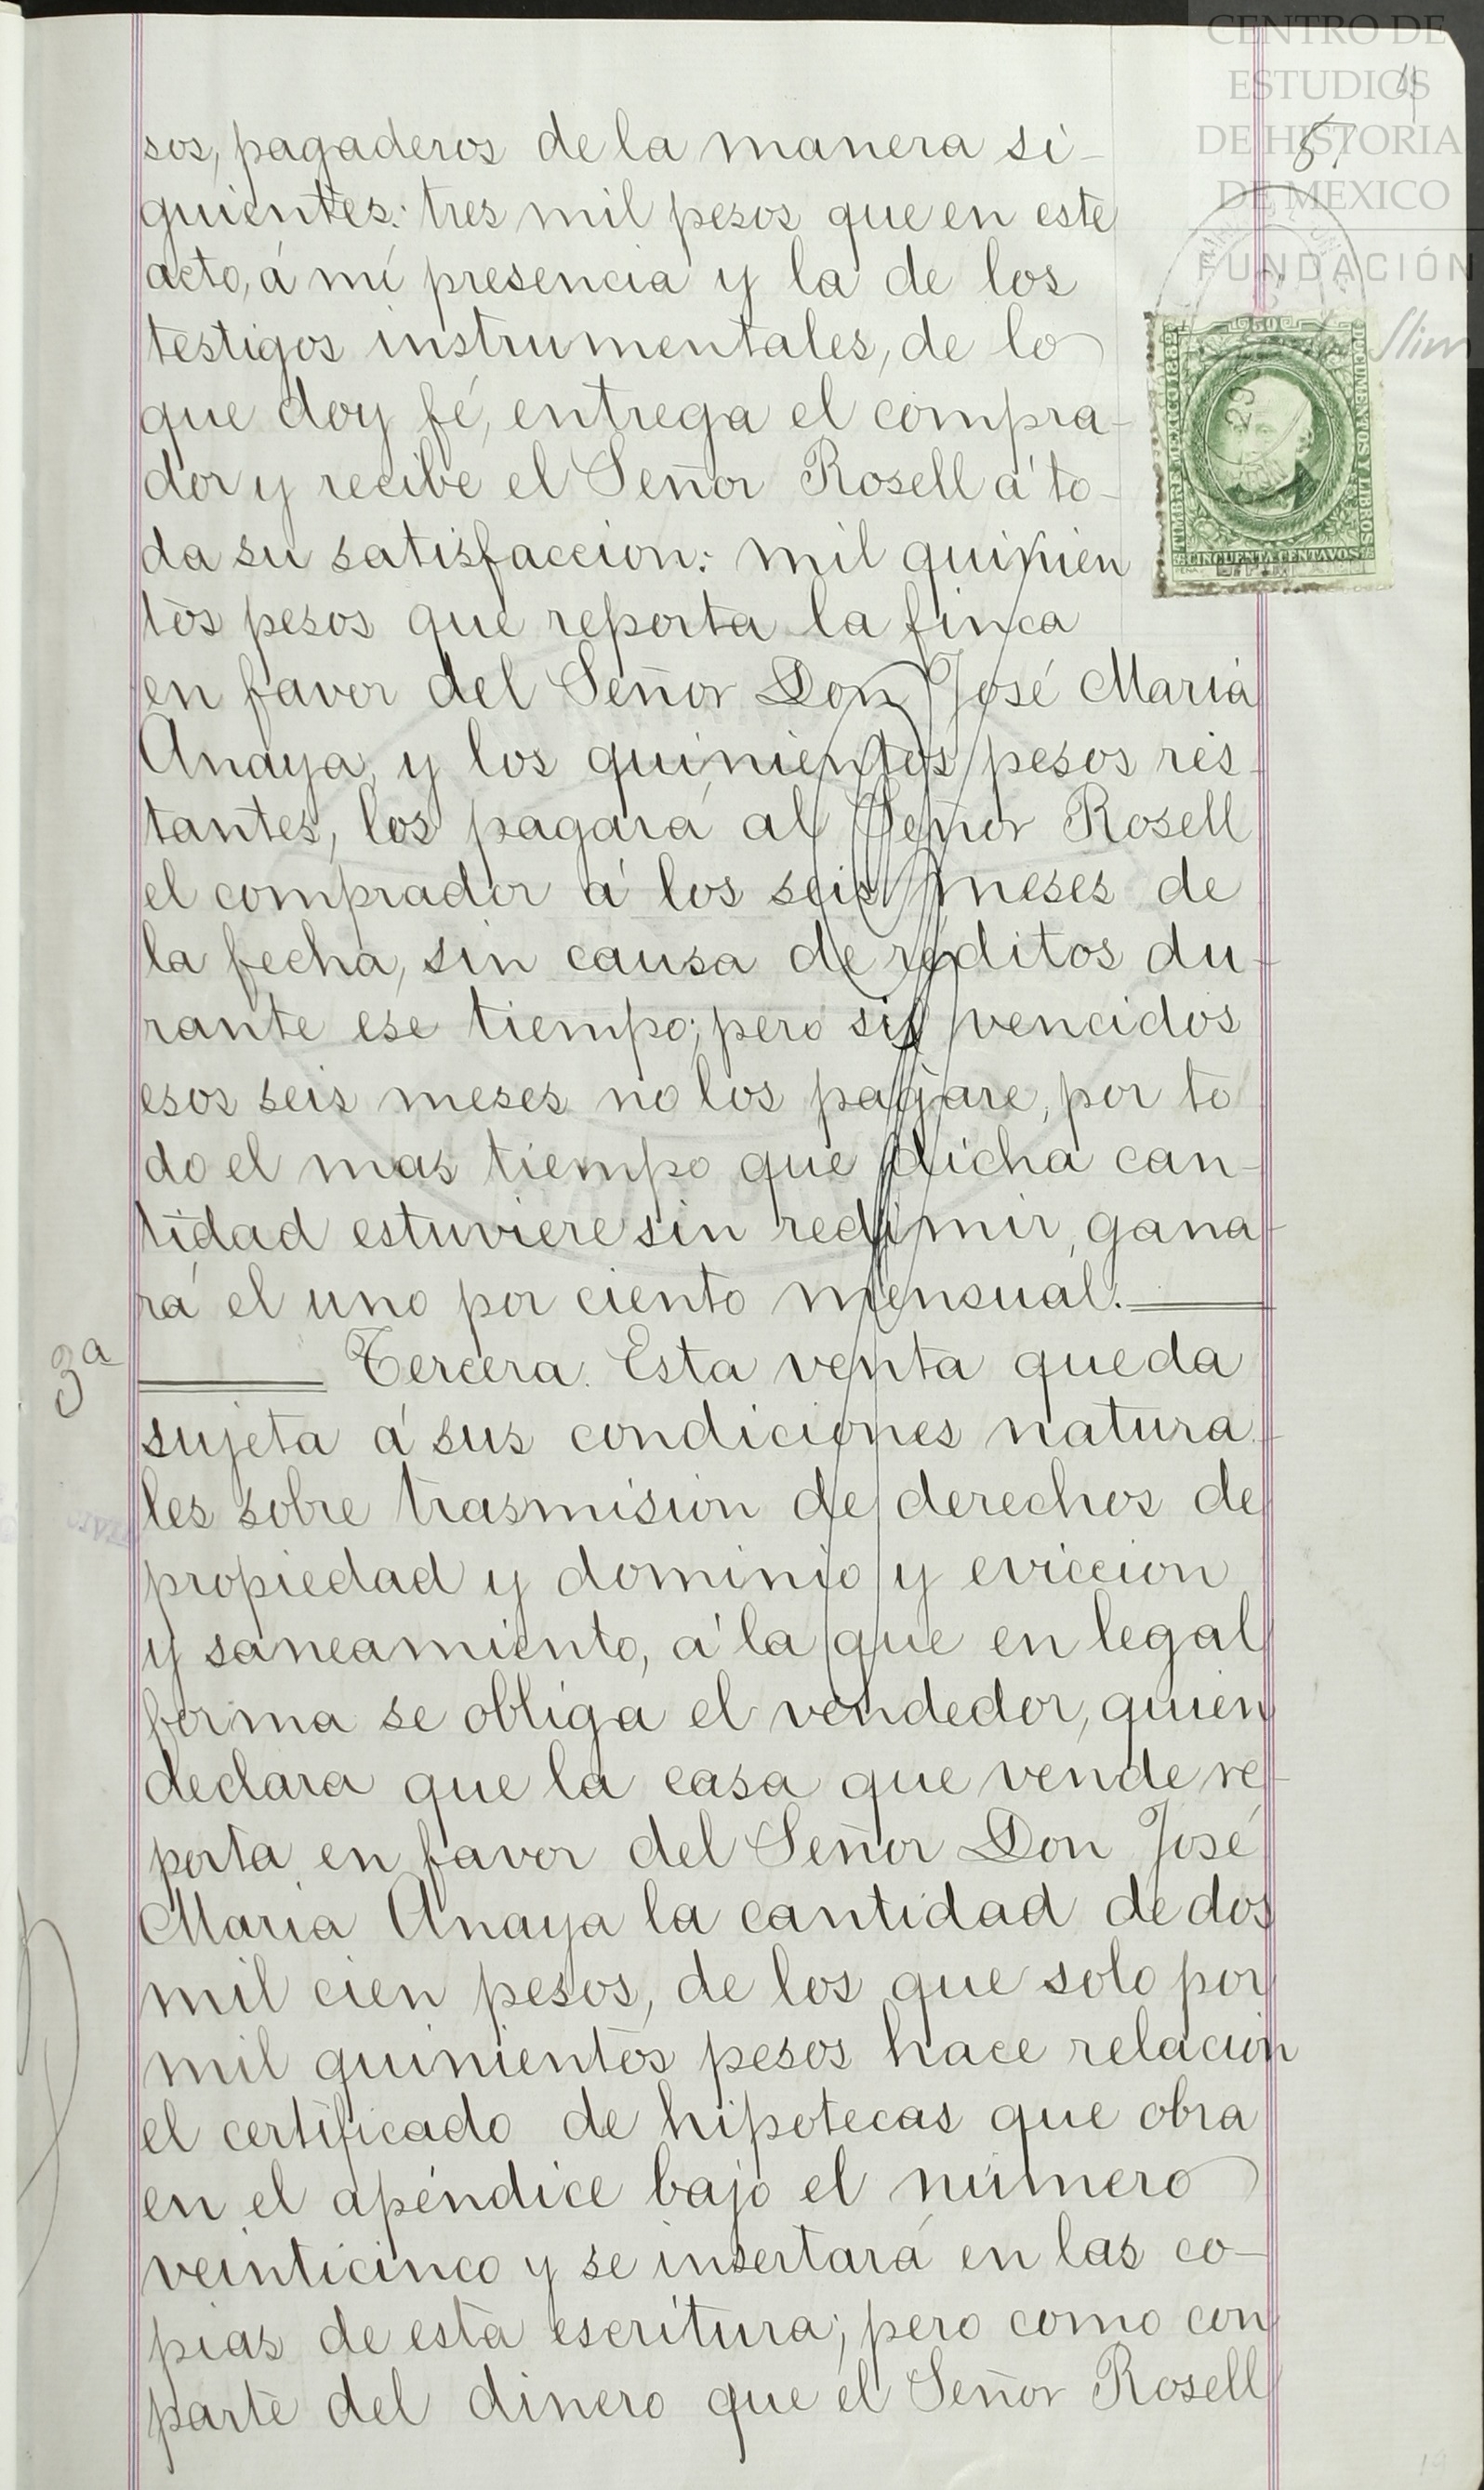 CENTRO DE
ESTUDIOS
DE HISTORIA
DE MEXICO
FUNDACIÓN
Slim
5.
sos, pagaderos de la manera si-
guientes: tres mil pesos que en este
acto, á mi presencia y la de los
testigos instrumentales, de lo
que doy fé, entrega el compra-
dor y recibe el Señor Rosell á to-
da su satisfaccion: mil quinien
tos pesos que reporta la finca
en favor del Señor Don José Maria
Anaya, y los quinientos pesos res-
tantes, los pagará al Señor Rosell
el comprador á los seis meses de
la fecha, sin causa de réditos du-
rante ese tiempo; pero si vencidos
esos seis meses no los pagare, por to
do el mas tiempo que dicha can-
tidad estuviere sin redimir, gana-
rá el uno por ciento mensual.
3a
Tercera. Esta venta queda
sujeta á sus condiciones natura-
les sobre trasmision de derechos de
propiedad y dominio y eviccion
y saneamiento, á la que en legal
forma se obliga el vendedor, quien
declara que la casa que vende re-
porta en favor del Señor Don José
Maria Anaya la cantidad de dos
mil cien pesos, de los que solo por
mil quinientos pesos hace relacion
el certificado de hipotecas que obra
en el apéndice bajo el número
veinticinco y se insertará en las co-
pias de esta escritura; pero como con
parte del dinero que el Señor Rosell
50
TIMBRE DE MEXICO
DOCUMENTOS Y LIBROS
CINCUENTA CENTAVOS
23